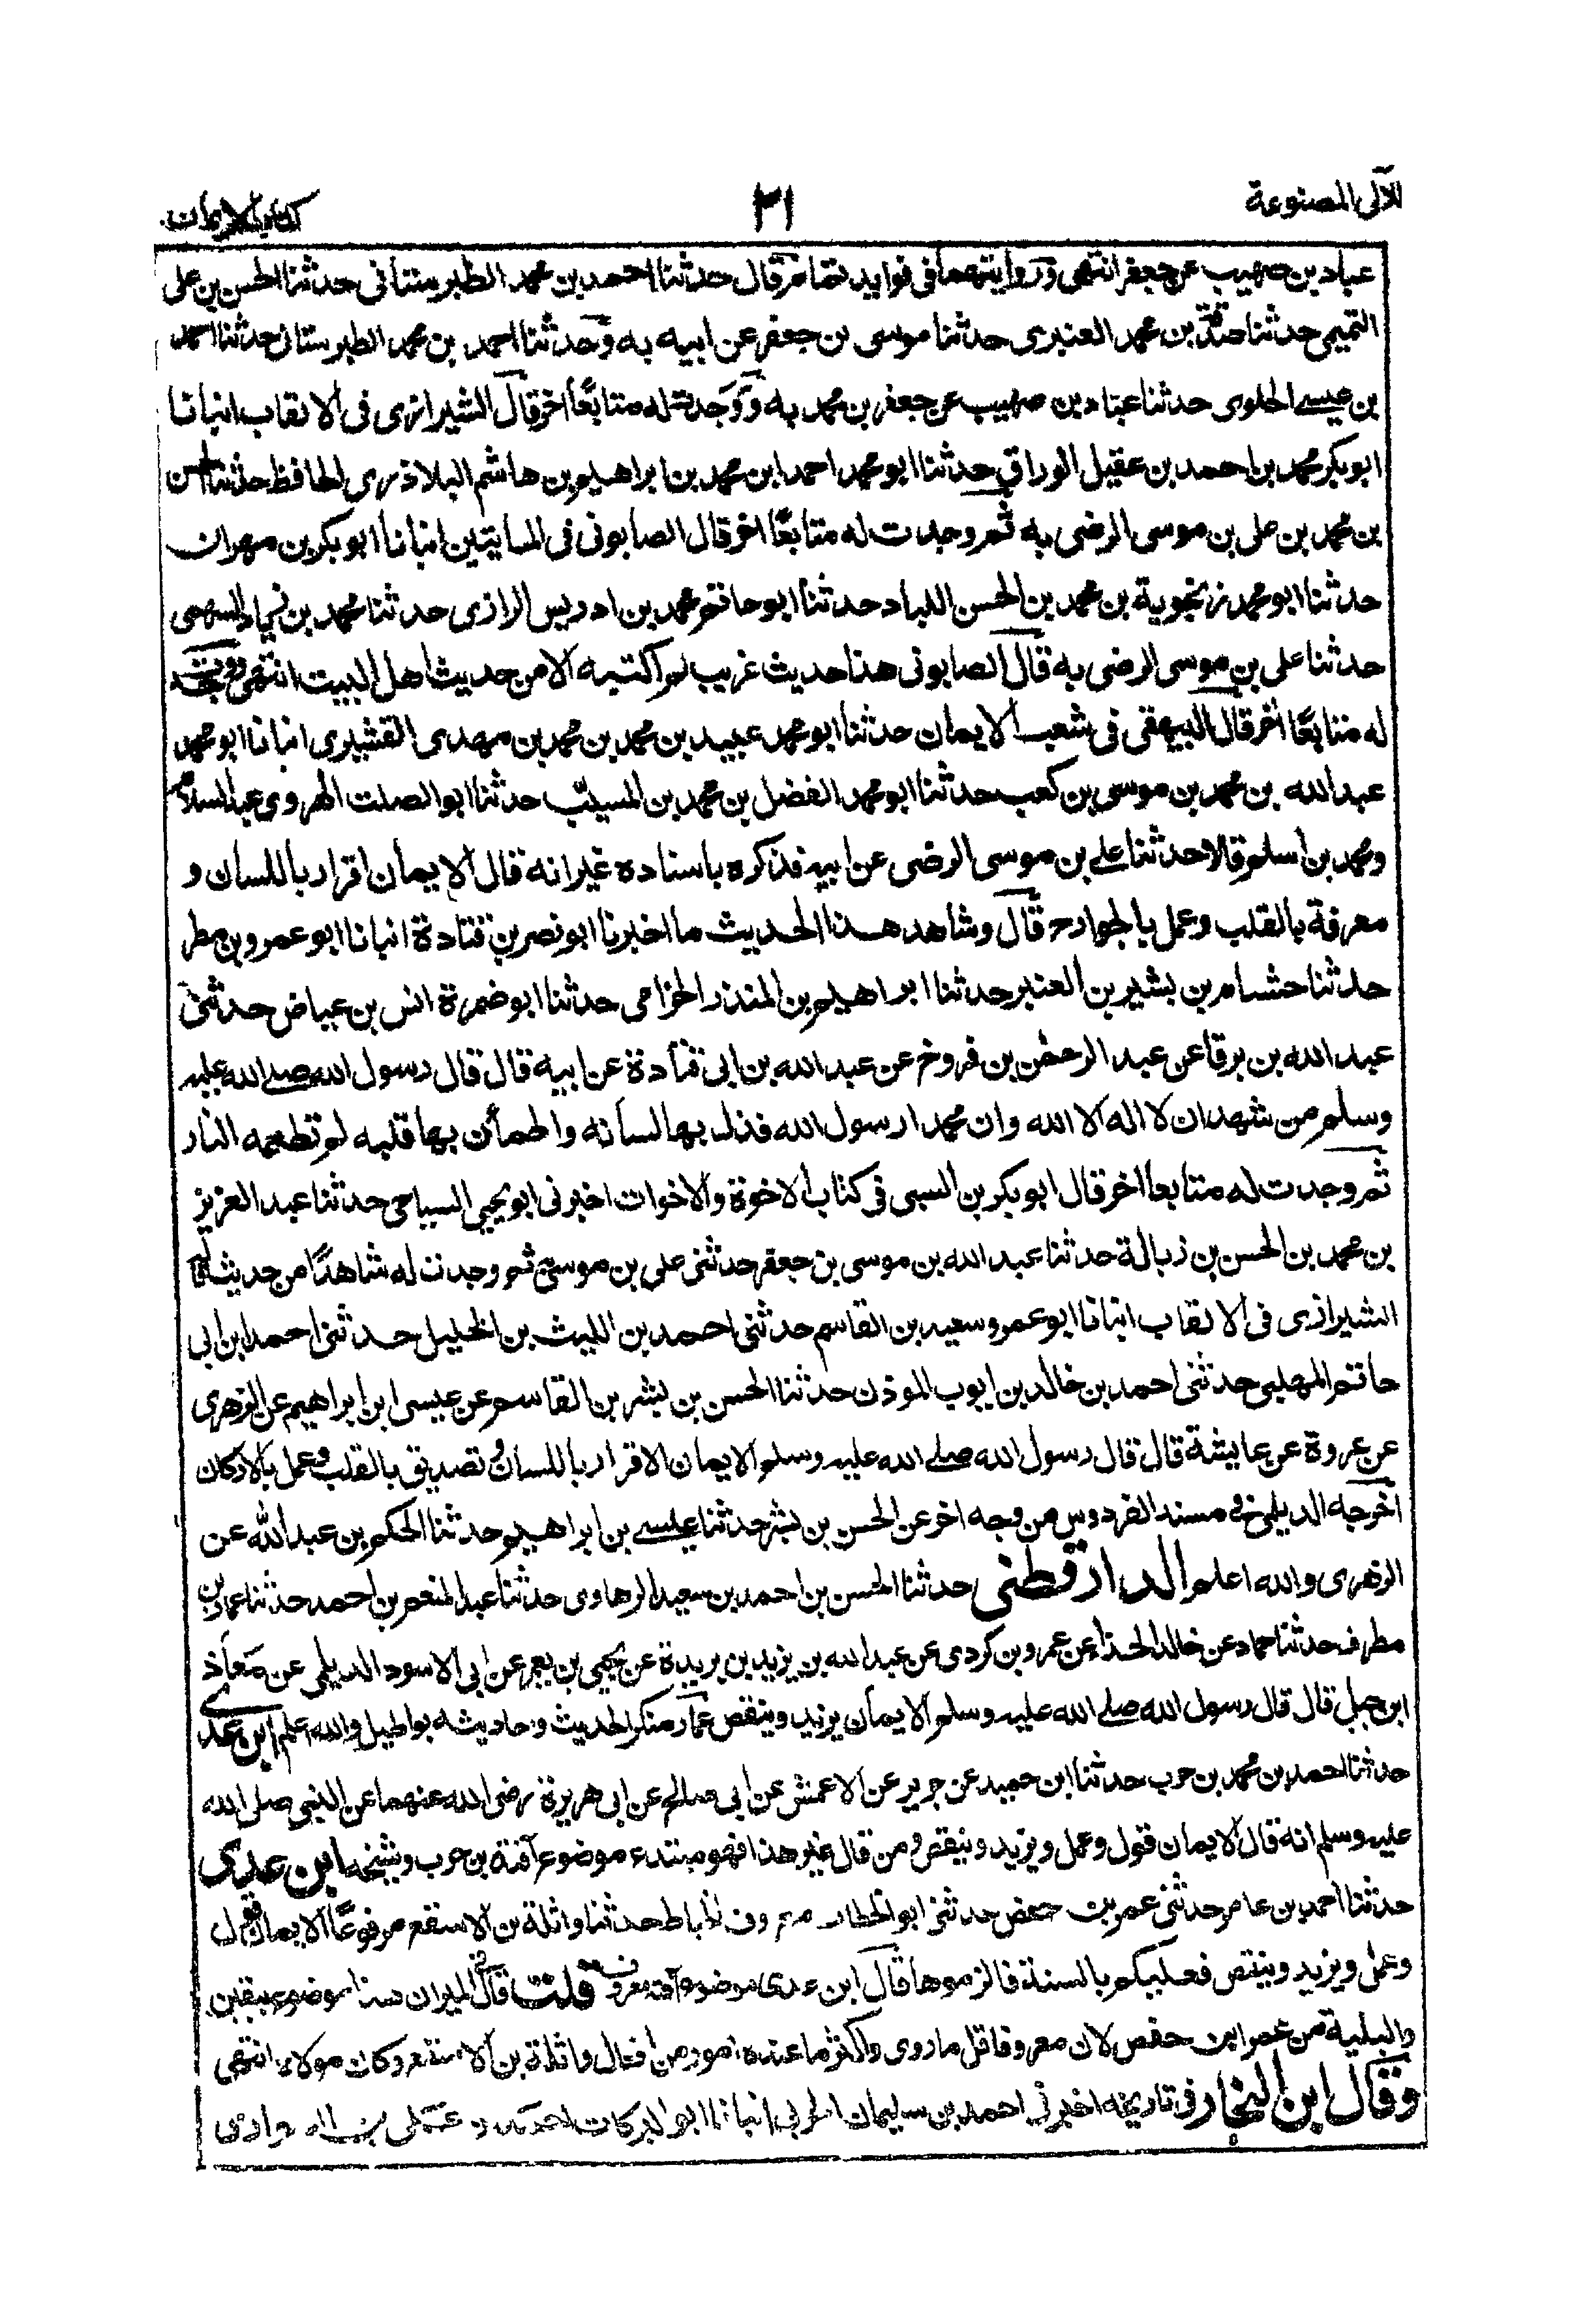 اللآلی المصنوعة
٣١
كتاب الايمان
عباد بن صهيب عن جعفر انتهى وروايتهما فى فوايد تمام قال حدثنا احمد بن محمد الطبرستانى حدثنا الحسن بن على
التميمى حدثنا محمد بن صدقة العنبرى حدثنا موسى بن جعفر عن ابيه به وحدثنا احمد بن محمد الطبرستانى حدثنا احمد
بن عيسے العلوى حدثنا عباد بن صهيب عن جعفر بن محمد به ووجدت له متابعًا اخر قال الشيرازى فى الالقاب انبانا
ابوبكر محمد بن احمد بن عقيل الوراق حدثنا ابو محمد احمد ابن محمد بن ابراهيم بن هاشم البلاذرى الحافظ حدثنا الحسن
بن محمد بن على بن موسى الرضى به ثم وجدت له متابعًا اخر قال الصابونى فى المايتين انبانا ابوبكر بن مهران
حدثنا ابو محمد زنجوية بن محمد بن الحسن اللباد حدثنا ابو حاتم محمد بن ادريس الرازى حدثنا محمد بن زياد السهمى
حدثنا على بن موسى الرضى به قال الصابونى هذا حديث غريب لم اكتبه الا من حديث اهل البيت انتهى ووجدت
له متابعًا اخر قال البيهقى فى شعب الايمان حدثنا ابو محمد عبيد بن محمد بن محمد بن مهدى القشيرى انبانا ابو محمد
عبد الله بن محمد بن موسى بن كعب حدثنا ابو محمد الفضل بن محمد بن المسيب حدثنا ابو الصلت الهروى عبد السلام
ومحمد بن اسلم قالا حدثنا على بن موسى الرضى عن ابيه فذكره باسناده غير انه قال الايمان اقرار باللسان و
معرفة بالقلب وعمل بالجوارح قال وشاهد هذا الحديث ما اخبرنا ابو نصر بن قتادة انبانا ابو عمرو بن مطر
حدثنا حشام بن بشير بن العنبر حدثنا ابراهيم بن المنذر الحزامى حدثنا ابو ضمرة انس بن عياض حدثنى
عبد الله بن برقا عن عبد الرحمٰن بن فروخ عن عبد الله بن ابى قتادة عن ابيه قال قال رسول الله صلے الله عليه
وسلم من شهد ان لا اله الا الله وان محمدا رسول الله فذل بها لسانه واطمأن بها قلبه لم تطعمه النار
ثم وجدت له متابعا اخر قال ابوبكر بن السبى فى كتاب الاخوة والاخوات اخبرنى ابو يحيى الساجى حدثنا عبد العزيز
بن محمد بن الحسن بن زبالة حدثنا عبد الله بن موسى بن جعفر حدثنى على بن موسى ثم وجدت له شاهدًا من حديث
الشيرازى فى الالقاب انبانا ابو عمرو سعيد بن القاسم حدثنى احمد بن الليث بن الخليل حدثنى احمد ابن ابى
حاتم المهلبى حدثنى احمد بن خالد بن ايوب الموذن حدثنا الحسن بن بشر بن القاسم عن عيسى ابن ابراهيم عن الزهرى
عن عروة عن عايشة قال قال رسول الله صلے الله عليه وسلم الايمان الاقرار باللسان وتصديق بالقلب وعمل بالاركان
اخرجه الديلمى فى مسند الفردوس من وجه اخر عن الحسن بن بشر حدثنا عيسے بن ابراهيم حدثنا الحكم بن عبد الله عن
الزهرى والله اعلم الدارقطنى حدثنا الحسن بن احمد بن سعيد الرهاوى حدثنا عبد المنعم بن احمد حدثنا عمار بن
مطرف حدثنا حماد عن خالد الحذاء عن عمرو بن كردى عن عبد الله بن يزيد بن بريدة عن يحيى بن يعمر عن ابى الاسود الديلى عن معاذ
ابن جبل قال قال رسول الله صلے الله عليه وسلم الايمان يزيد وينقص عمار منكر الحديث واحاديثه بواطيل والله اعلم ابن عدى
حدثنا احمد بن محمد بن حرب حدثنا ابن حميد عن جرير عن الاعمش عن ابى صالح عن ابى هريرة رضى الله عنهما عن النبى صلى الله
عليه وسلم انه قال الايمان قول وعمل ويزيد وينقص ومن قال غير هذا فهو مبتدء موضوع آفته بن حرب وشيخه ابن عدى
حدثنا احمد بن عامر حدثنى عمر بن حفص حدثنى ابو الخطاب معروف الخياط حدثنا واثلة بن الاسقع مرفوعًا الايمان قول
وعمل ويزيد وينقص فعليكم بالسنة فالزموها قال ابن عدى موضوع آفته معروف قلت قال فى الميزان هذا موضوع بيقين
والبلية من عمر ابن حفص لان معروفا قل ما روى واكثر ما عنده امور من افعال واثلة بن الاسقع وكان مولاه انتهى
وقال ابن النجار فى تاريخه اخبرنى احمد بن سليمان الحربى انبانا ابو البركات احمد بن على بن